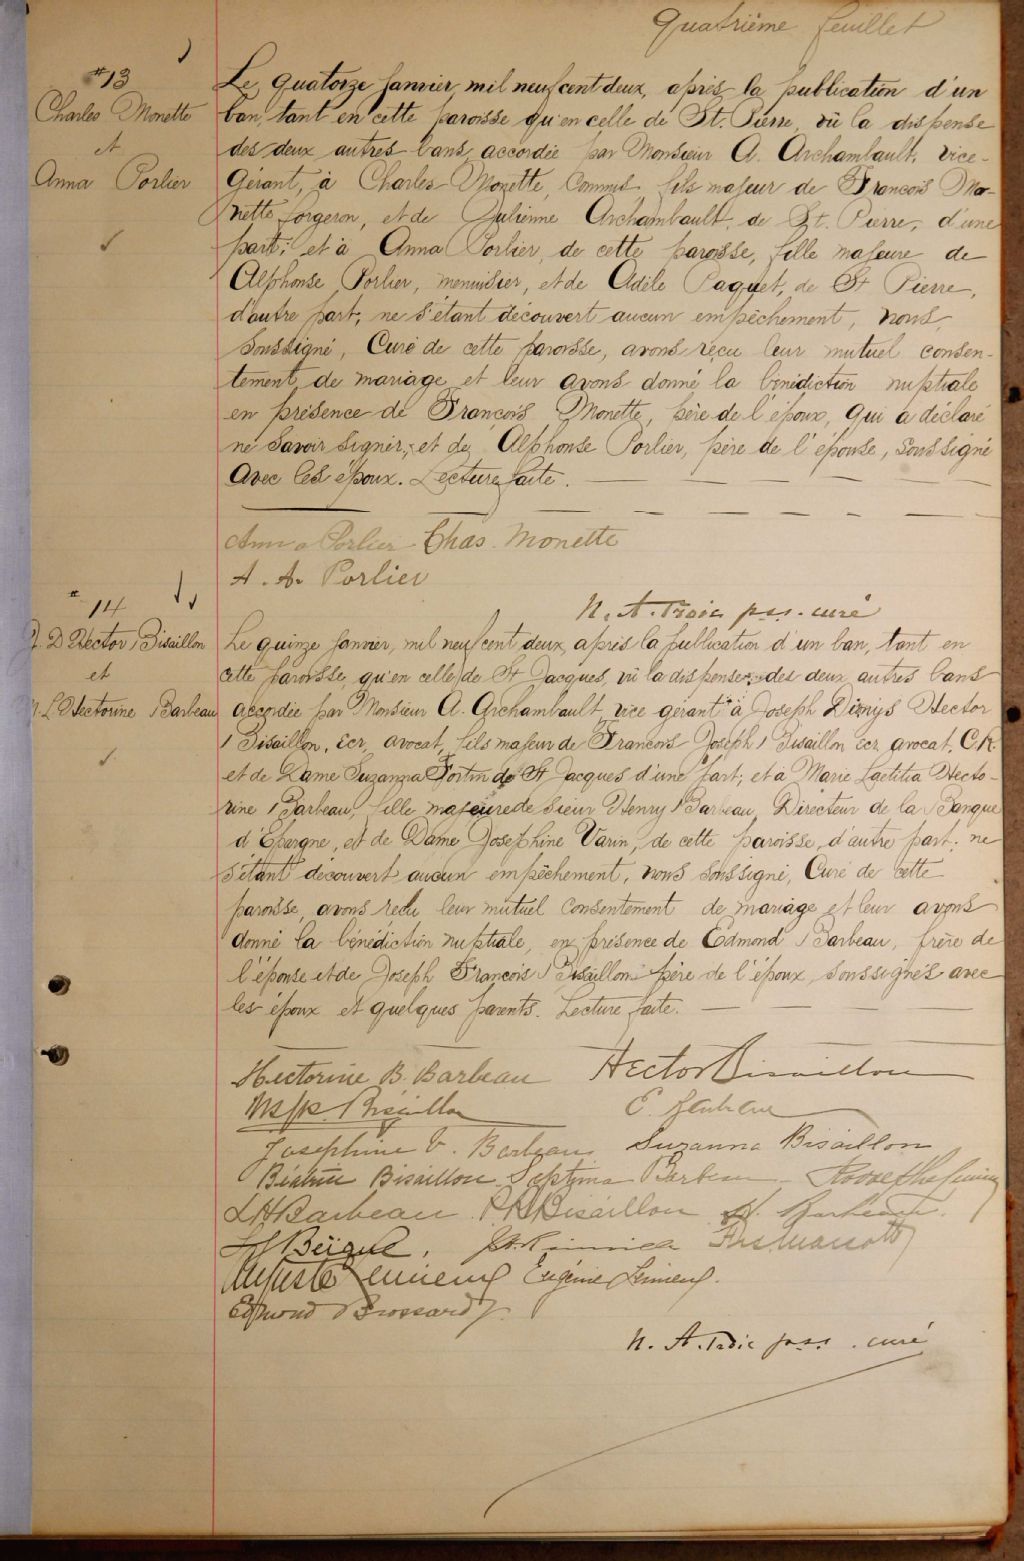 Quatrième feuillet
#13
Charles Monette
et
Anna Porlier
Le quatorze janvier, mil neuf cent deux, après la publication d'un
ban, tant en cette paroisse qu'en celle de St. Pierre, vû la dispense
des deux autres bans, accordée par Monsieur A. Archambault, vice-
gérant, à Charles Monette, Commis, fils majeur de François Mo-
nette forgeron, et de Julienne Archambault, de St. Pierre, d'une
part; et à Anna Porlier, de cette paroisse, fille majeure de
Alphonse Porlier, menuisier, et de Adèle Paquet, de St Pierre,
d'autre part; ne s'étant découvert aucun empêchement, nous,
soussigné, Curé de cette paroisse, avons reçu leur mutuel consen-
tement de mariage et leur avons donné la bénédiction nuptiale
en présence de François Monette, père de l'époux, qui a déclaré
ne savoir signer, et de Alphonse Porlier, père de l'épouse, soussigné
avec les époux. Lecture faite.
Anna Porlier Chas. Monette
A. A. Porlier
N. A. Troie pss. curé
# 14
J. D Hector Bisaillon
et
M. L Hectorine Barbeau
Le quinze janvier, mil neuf cent deux, après la publication d'un ban, tant en
cette paroisse, qu'en celle de St Jacques, vû la dispense des deux autres bans
accordée par Monsieur A. Archambault, vice gérant à Joseph Dionys Hector
Bisaillon, Ecr, avocat, fils majeur de Francois Joseph Bisaillon Ecr, avocat, C.R.
et de Dame Suzanna Fortin de St Jacques d'une part; et à Marie Laetitia Hecto-
rine Barbeau, fille majeure de sieur Henry Barbeau, Directeur de la Banque
d'Epargne, et de Dame Josephine Varin, de cette paroisse, d'autre part; ne
s'étant découvert aucun empêchement, nous soussigné, Curé de cette
paroisse, avons reçu leur mutuel consentement de mariage et leur avons
donné la bénédiction nuptiale, en présence de Edmond Barbeau, frère de
l'épouse et de Joseph François Bisaillon père de l'époux, soussignés avec
les époux et quelques parents. Lecture faite.
Hectorine B. Barbeau Hector Bisaillon
Bisaillon E. Barbeau
Josephine V. Barbeau Suzanna Bisaillon
Béatrice Bisaillon Septima Barbeau
L H Barbeau Bisaillon H. Barbeau
Beique,
Auguste Lemieux Eugénie Lemieux.
Edmond Brossard
N. A. Troie pss. curé